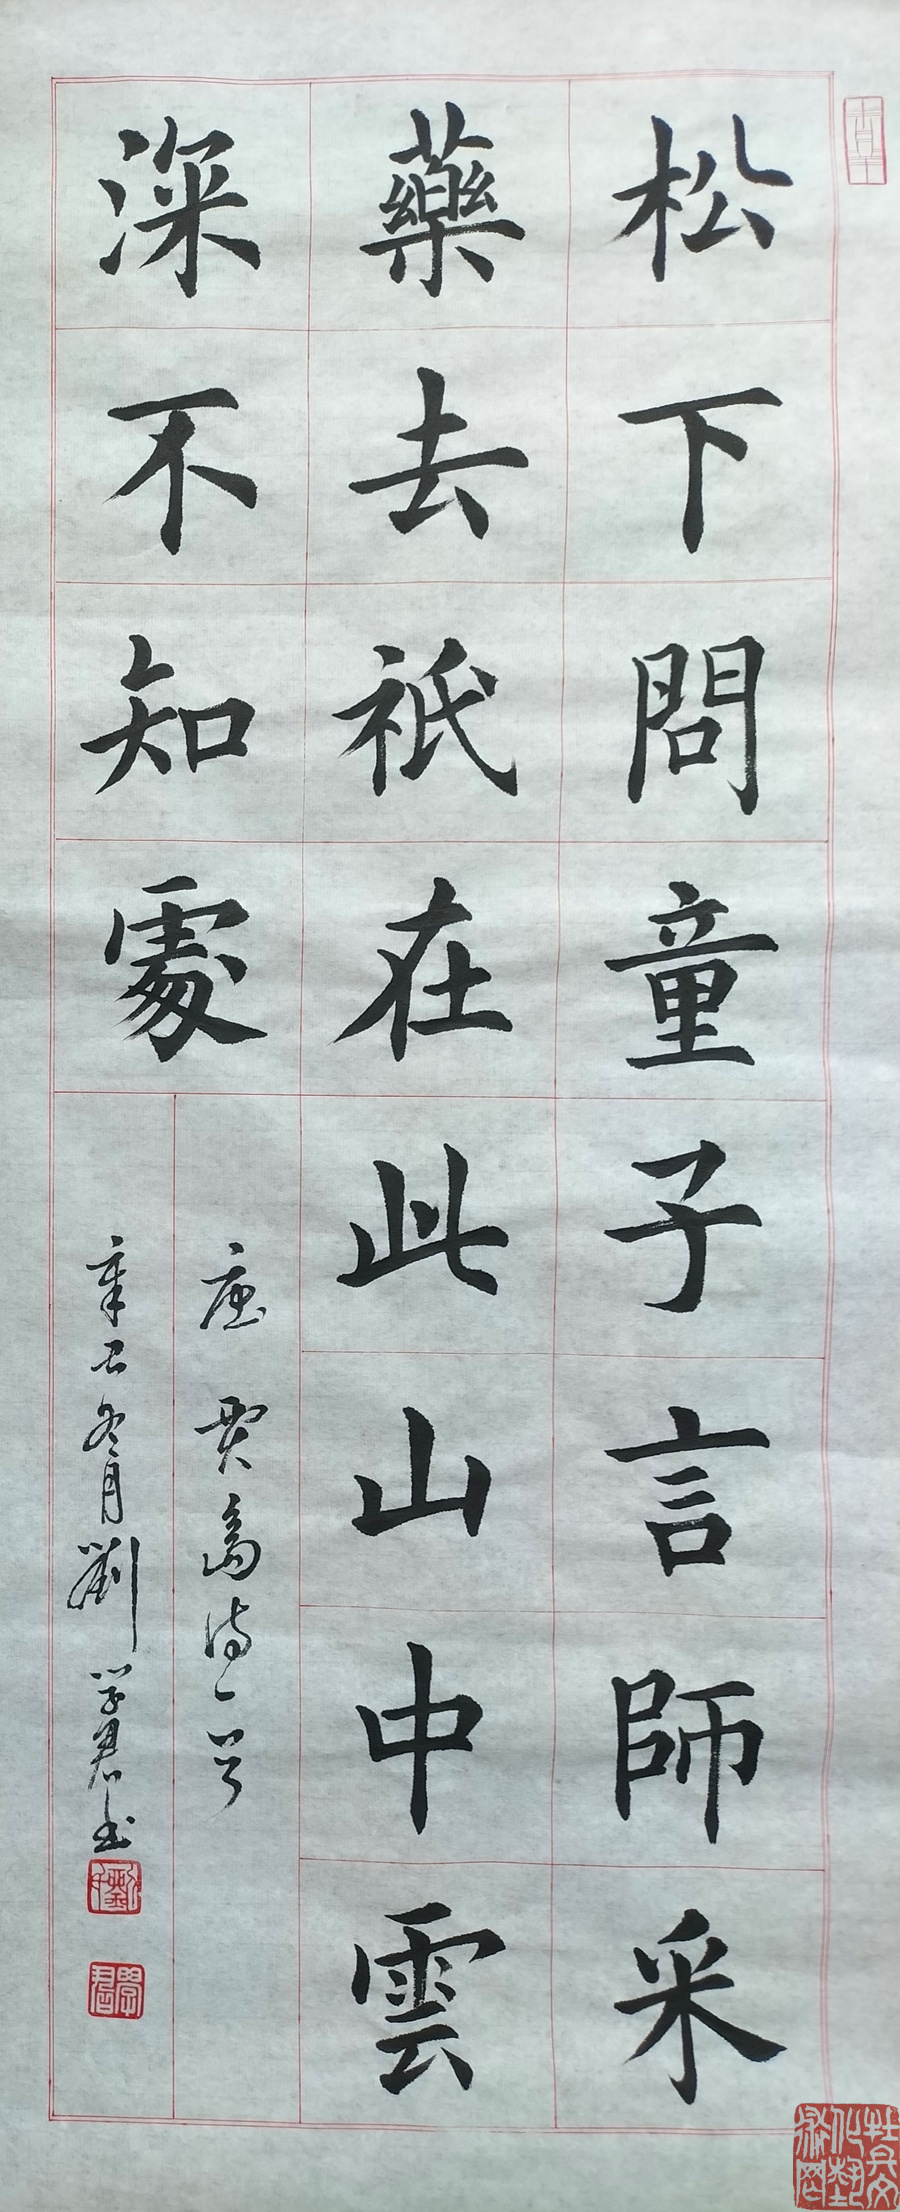 松下問童子言師采
藥去祇在此山中雲
深不知處
唐賈島詩一首
辛丑冬月劉學君書
劉
學君